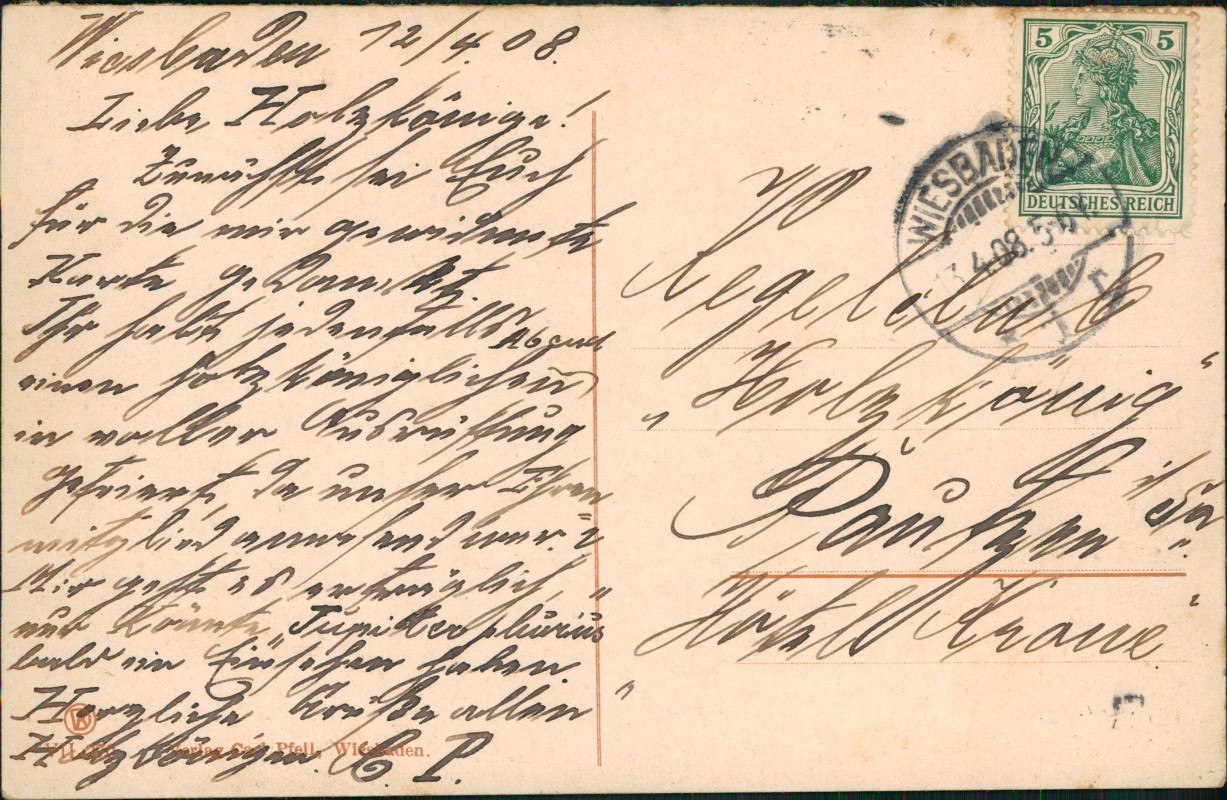 Wiesbaden 12/4.08.
Liebe Holzkönige!
Zunächst sei Euch
für die mir gewidmete
Karte gedankt.
Ihr habt jedenfalls Abend
einen holzköniglichen
in voller Ausrüstung
gefeiert, da unser Ehren
mitglied anwesend war. ?
Mir geht es erträglich,
nur könnte "Jupiter plurius"
bald ein Einsehen haben.
Herzliche Grüße allen
Holzkönigen. C. P.
Verlag Carl Pfeil, Wiesbaden.
5 5
DEUTSCHES REICH
WIESBADEN
13.4.08. 5-6 N.
Kegelclub
"Holzkönig"
Bautzen i/Sa.
Hôtel Krone.